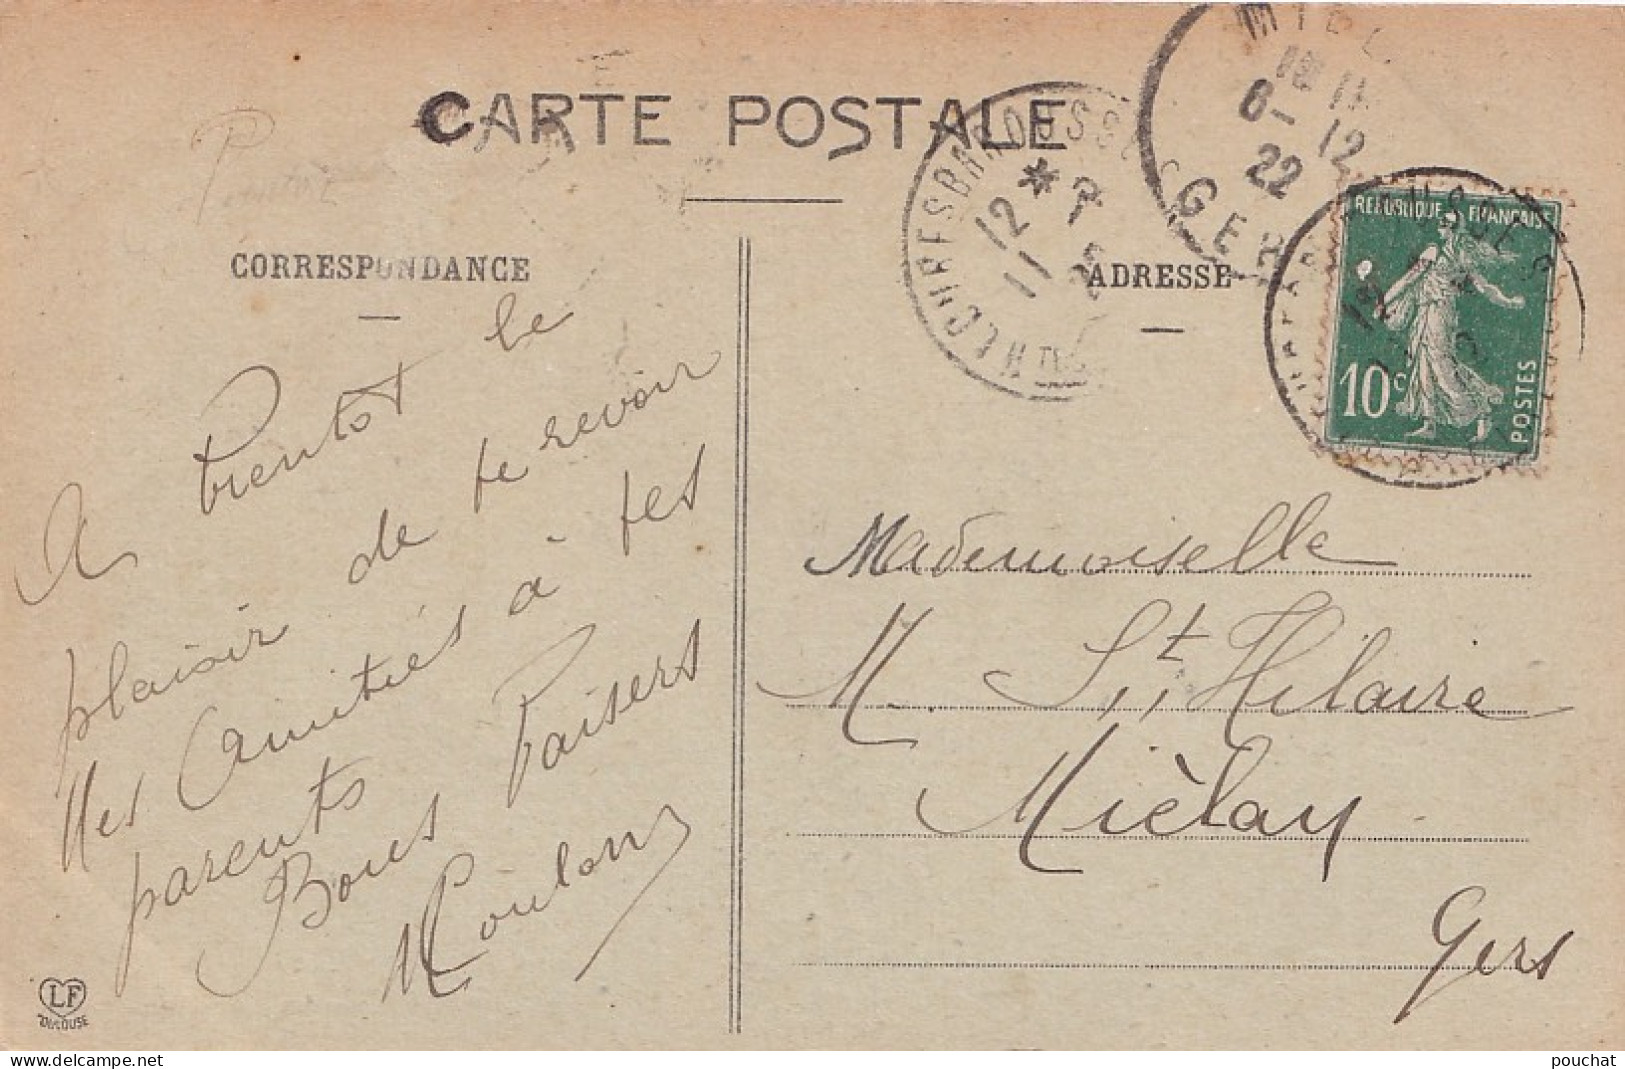 CARTE POSTALE
CORRESPONDANCE
ADRESSE
A bientôt le
plaisir de te revoir
Mes Amitiés à tes
parents
Bons Baisers
M Coulon
Mademoiselle
M. St Hilaire
Mièlan
Gers
REPUBLIQUE FRANÇAISE
10c
POSTES
GER
6-12
22
12 *
11
LF
TOULOUSE
pouchat